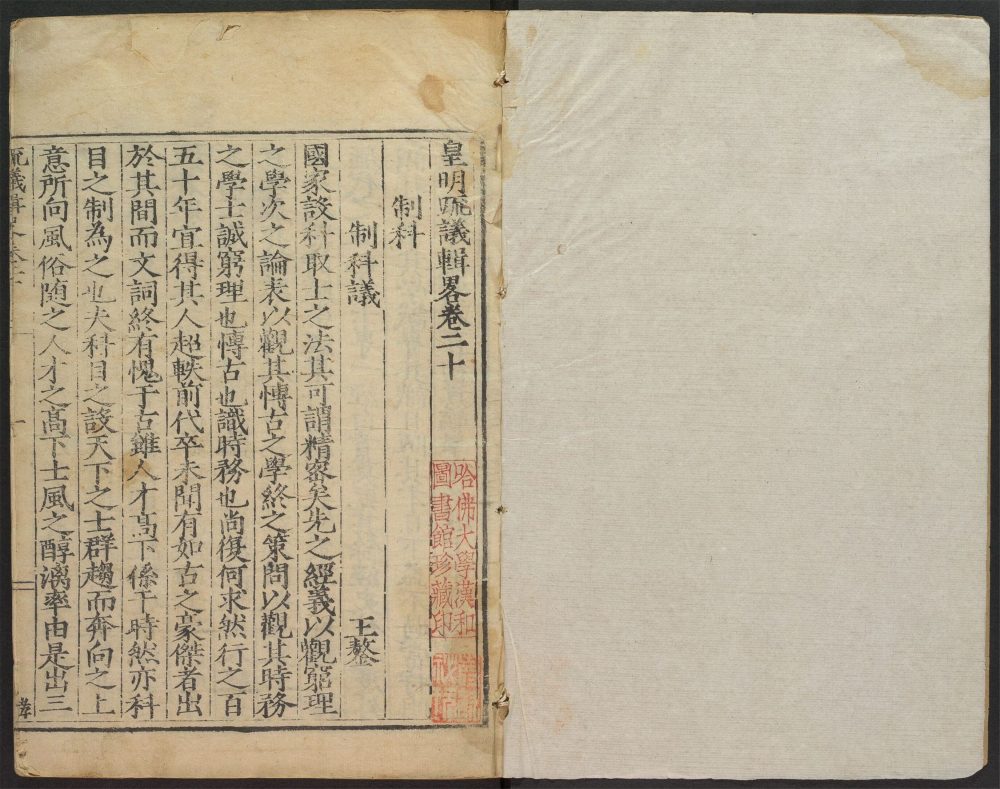 皇明疏議輯畧卷二十
制科
制科議
王鏊
國家設科取士之法其可謂精密矣先之經義以觀窮理
之學次之論表以觀其愽古之學終之策問以觀其時務
之學士誠窮理也愽古也識時務也尚復何求然行之百
五十年宜得其人超軼前代卒未聞有如古之豪傑者出
於其間而文詞終有愧于古雖人才髙下係于時然亦科
目之制為之也夫科目之設天下之士群趨而奔向之上
意所向風俗随之人才之髙下士風之醇漓率由是出三
哈佛大學漢和
圖書館珍藏印